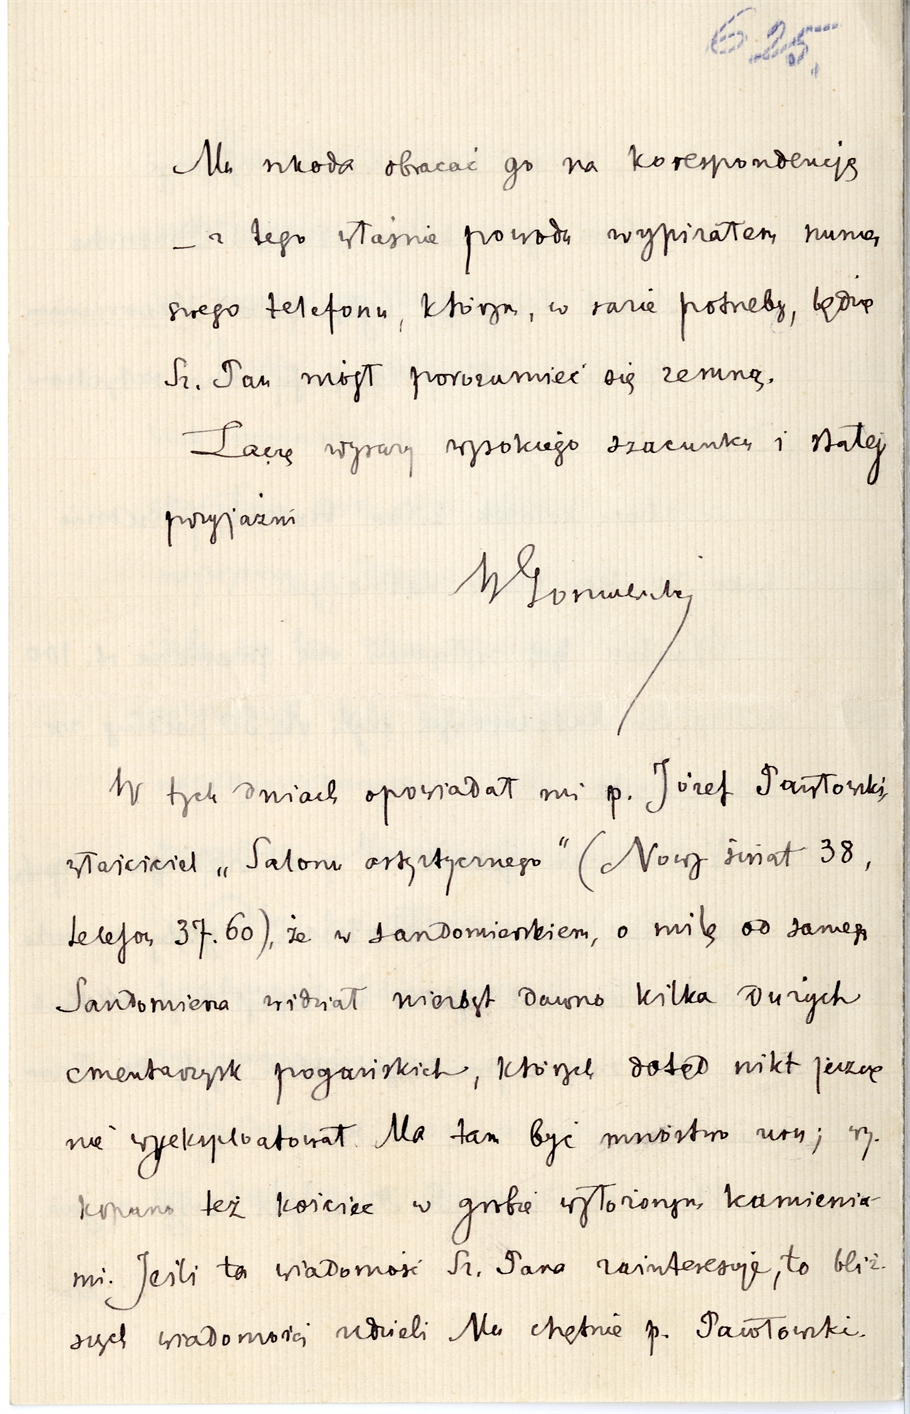 625.
Mu szkoda obracać go na korespondencję
– z tego właśnie powodu wypisałem numer
swego telefonu, którym, w razie potrzeby, będzie
Sz. Pan mógł porozumieć się zemną.
Łączę wyrazy wysokiego szacunku i stałej
przyjaźni
W tych dniach opowiadał mi p. Józef Pawłowski,
właściciel „Salonu artystycznego" (Nowy świat 38,
telefon 37.60), że w sandomierskiem, o milę od samego
Sandomierza widział niezbyt dawno kilka dużych
cmentarzysk pogańskich, których dotąd nikt jeszcze
nie wyeksploatował. Ma tam być mnóstwo urn; wy-
kopano też kościec w grobie wyłożonym kamienia-
mi. Jeśli ta wiadomość Sz. Pana zainteresuje, to bliż-
szych wiadomości udzieli Mu chętnie p. Pawłowski.